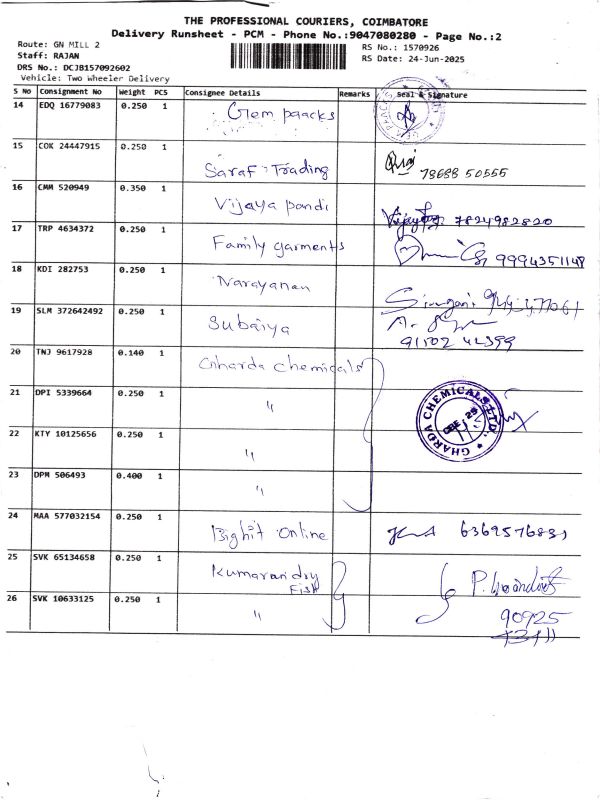 THE PROFESSIONAL COURIERS, COIMBATORE
Delivery Runsheet - PCM - Phone No.:9047080280 - Page No.:2
Route: GN MILL 2
RS No.: 1570926
Staff: RAJAN
RS Date: 24-Jun-2025
DRS No.: DCJB157092602
Vehicle: Two Wheeler Delivery
S No Consignment No Weight PCS Consignee Details Remarks Seal & Signature
14 EDQ 16779083 0.250 1 Gem paacks
15 COK 24447915 0.250 1 Saraf Trading 78688 50555
16 CMM 520949 0.350 1 Vijaya pandi 7824982820
17 TRP 4634372 0.250 1 Family garments 9994351148
18 KDI 282753 0.250 1 Narayanan
19 SLM 372642492 0.250 1 Subaiya
20 TNJ 9617928 0.140 1 Gharda chemicals
21 DPI 5339664 0.250 1 "
GHARDA CHEMICALS LTD.
22 KTY 10125656 0.250 1 "
23 DPM 506493 0.400 1 "
24 MAA 577032154 0.250 1 Bighit Online 6369576831
25 SVK 65134658 0.250 1 Kumaran dry
Fish
26 SVK 10633125 0.250 1 " 90925